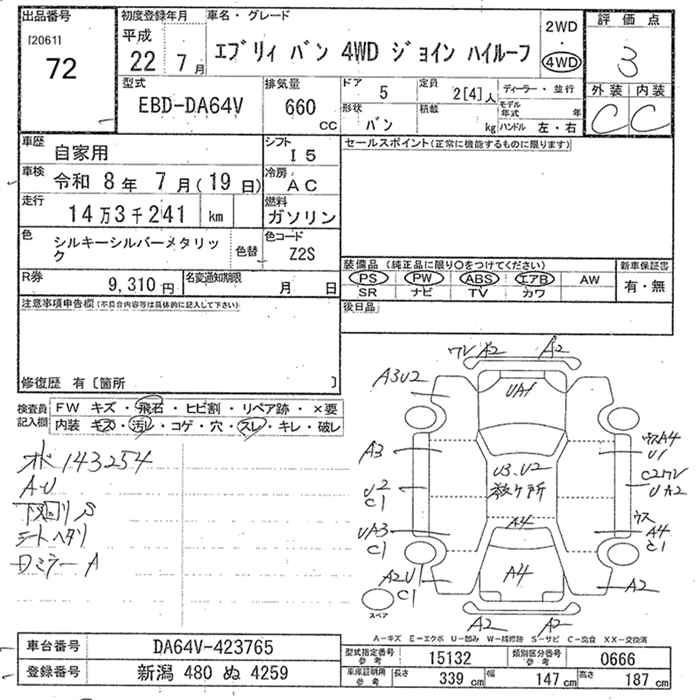 出品番号
[2061]
72
初度登録年月
平成
22 7 月
車名・グレード
エブリィ バン 4WD ジョイン ハイルーフ
2WD
・
4WD
評価点
3
外装 内装
C C
型式
EBD-DA64V
排気量
660
CC
ドア
5
定員
2[4]人
ディーラー・並行
形状
バン
積載
kg
モデル年式 年
ハンドル 左・右
車歴
自家用
シフト
I5
セールスポイント(正常に機能するものに限ります)
車検
令和 8年 7月(19日)
冷房
AC
走行
14万3千241 km
燃料
ガソリン
色
シルキーシルバーメタリック
色替
色コード
Z2S
装備品(純正品に限り○をつけてください)
PS PW ABS エアB AW
SR ナビ TV カワ
新車保証書
有・無
R券
9,310円
名変通知期限
月 日
後日品
注意事項申告欄(不具合内容等は具体的に記入して下さい)
修復歴 有〔箇所 〕
検査員記入欄
FW キズ・飛石・ヒビ割・リペア跡・×要
内装 キズ・汚レ・コゲ・穴・スレ・キレ・破レ
オド143254
AU
下回りS
シートヘタリ
Dミラー A
ワレ A2 A2
A3U2
UA1
A3
ウスA4
U1
U3、U2
数ヶ所
U2
C1
C2ワレ
UA2
A4
UA3
C1
ウス
A4
C1
A4
A2U
C1
A2
スペア
A2 A2
A-キズ E-エクボ U-凹み W-補修跡 S-サビ C-腐食 XX-交換済
車台番号
DA64V-423765
登録番号
新潟 480 ぬ 4259
型式指定番号
参考
15132
類別区分番号
参考
0666
車庫証明用
参考
長さ
339 cm
幅
147 cm
高さ
187 cm